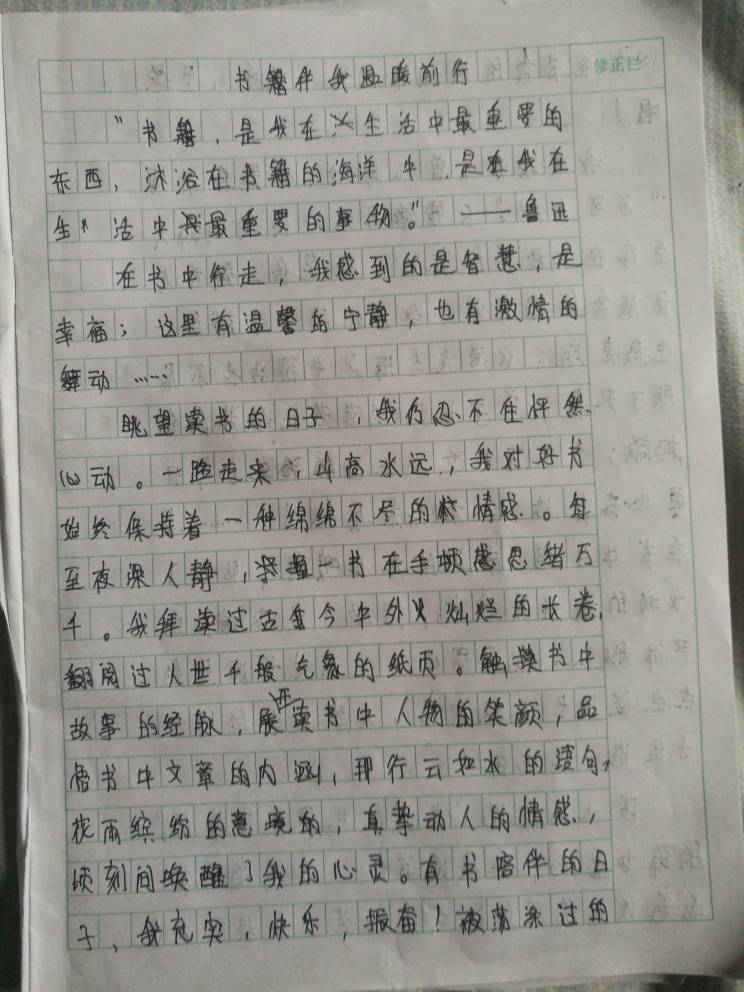 书籍伴我温暖前行
修正栏
"书籍，是我在生活中最重要的
东西，沐浴在书籍的海洋中，是在我在
生活中最重要的事物。"——鲁迅
在书中行走，我感到的是智慧，是
幸福；这里有温馨的宁静，也有激情的
舞动……
眺望读书的日子，我仍忍不住怦然
心动。一路走来，山高水远，我对好书
始终保持着一种绵绵不尽的情感。每
至夜深人静，掌握一书在手顿感思绪万
千。我拜读过古今中外灿烂的长卷，
翻阅过人世千般气象的纸页。触摸书中
故事的经脉，展读书中人物的笑颜，品
悟书中文章的内涵，那行云如水的语句，
花雨缤纷的意境的，真挚动人的情感，
顷刻间唤醒了我的心灵。有书陪伴的日
子，我充实，快乐，振奋！被荡涤过的